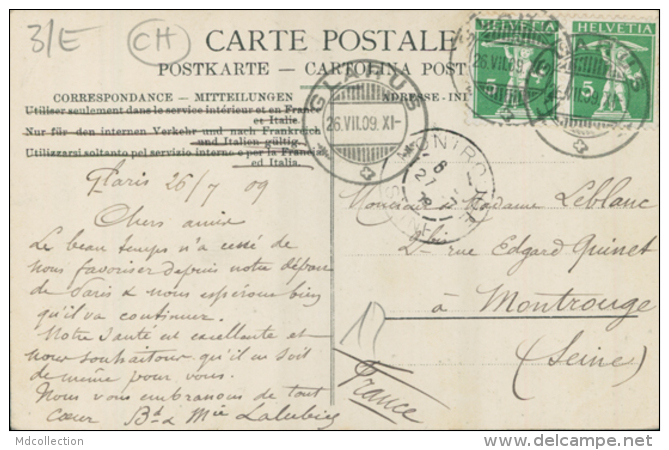 31/E
CH
CARTE POSTALE
POSTKARTE — CARTOLINA POST
CORRESPONDANCE — MITTEILUNGEN
Utiliser seulement dans le service intérieur et en France
et Italie.
Nur für den internen Verkehr und nach Frankreich
und Italien gültig.
Utilizzarsi soltanto pel servizio interno e per la Francia
ed Italia.
Glaris 26/7 09
Chers amis
Le beau temps n'a cessé de
nous favoriser depuis notre départ
de Paris & nous espérons bien
qu'il va continuer.
Notre santé est excellente et
nous souhaitons qu'il en soit
de même pour vous.
Nous vous embrassons de tout
cœur Bd & Mie
ADRESSE-INI
HELVETIA
5
HELVETIA
5
GLARUS
26.VII.09. XI-
GLARUS
26.VII.09
MONTROUGE
27
Monsieur & Madame Leblanc
2 bis rue Edgard Quinet
à Montrouge
(Seine)
France
Mdcollection
delcampe.net